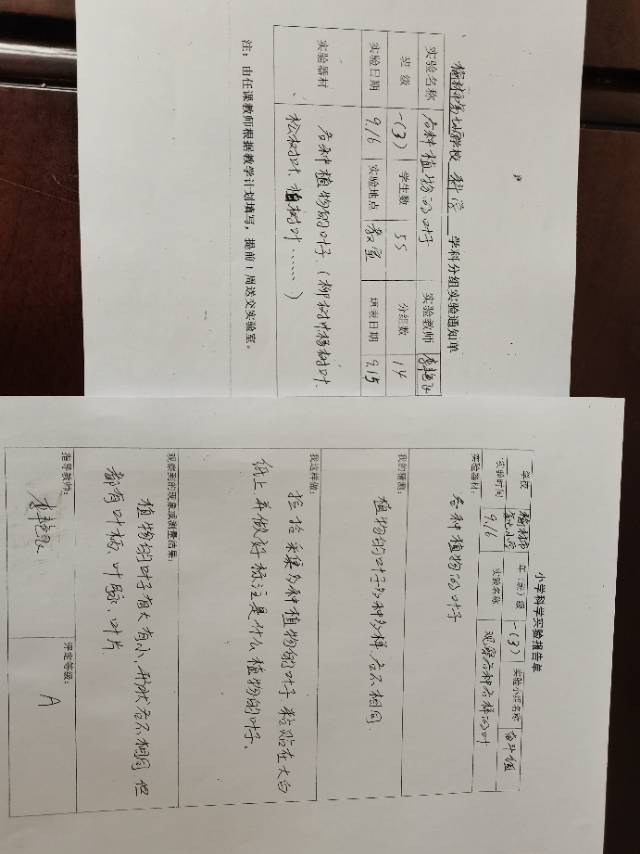 学校 科学 学科分组实验通知单
实验名称 各种植物的叶子 实验教师
班级 一(3) 学生数 55 分组数 14
实验日期 9.16 实验地点 教室 填表日期 9.15
实验器材 各种植物的叶子.(柳树叶杨树叶.
松树叶. 树叶……)
注:由任课教师根据教学计划填写,提前1周送交实验室。
小学科学实验报告单
学校 年(班)级 一(3) 实验小组名称 奋斗组
实验时间 9.16 实验名称 观察各种各样的叶
实验器材:
各种植物的叶子
我的猜测:
植物的叶子多种多样各不相同.
我这样做:
捡拾采集多种植物的叶子 粘贴在大白
纸上并做好标注是什么植物的叶子.
观察到的现象或测量结果:
植物的叶子有大有小,形状各不相同 但
都有叶柄,叶脉,叶片
指导教师: 评定等级: A